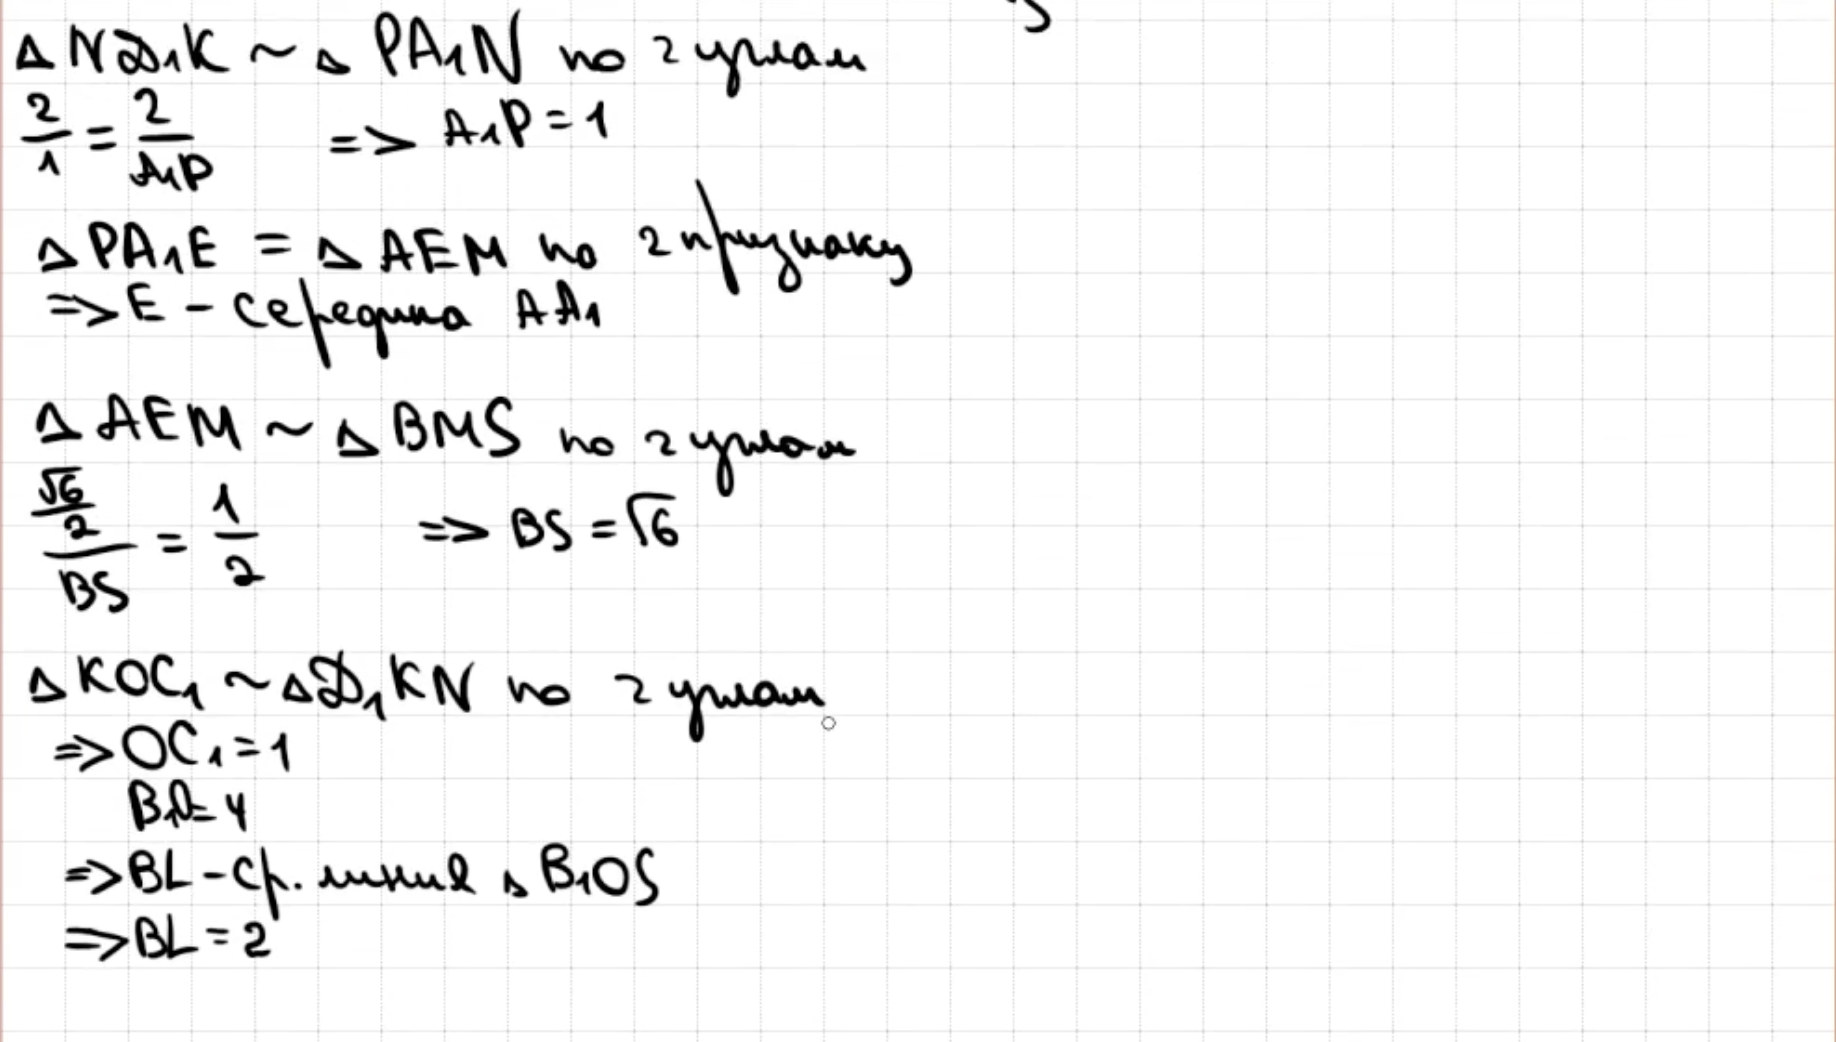 △ NД₁K ~ △ PA₁N по 2 углам
2/1 = 2/A₁P => A₁P = 1
△ PA₁E = △ AEM по 2 признаку
=> E - середина AA₁
△ AEM ~ △ BMS по 2 углам
(√6/2)/BS = 1/2 => BS = √6
△ KOC₁ ~ △Д₁KN по 2 углам
=> OC₁ = 1
B₁O = 4
=> BL - ср. линия △ B₁OS
=> BL = 2